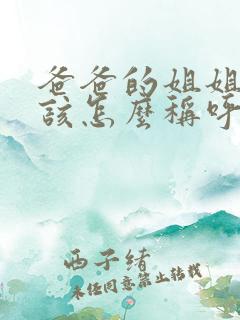 爸爸的姐姐
該怎麼稱呼
西子緒
未任同意禁止转载